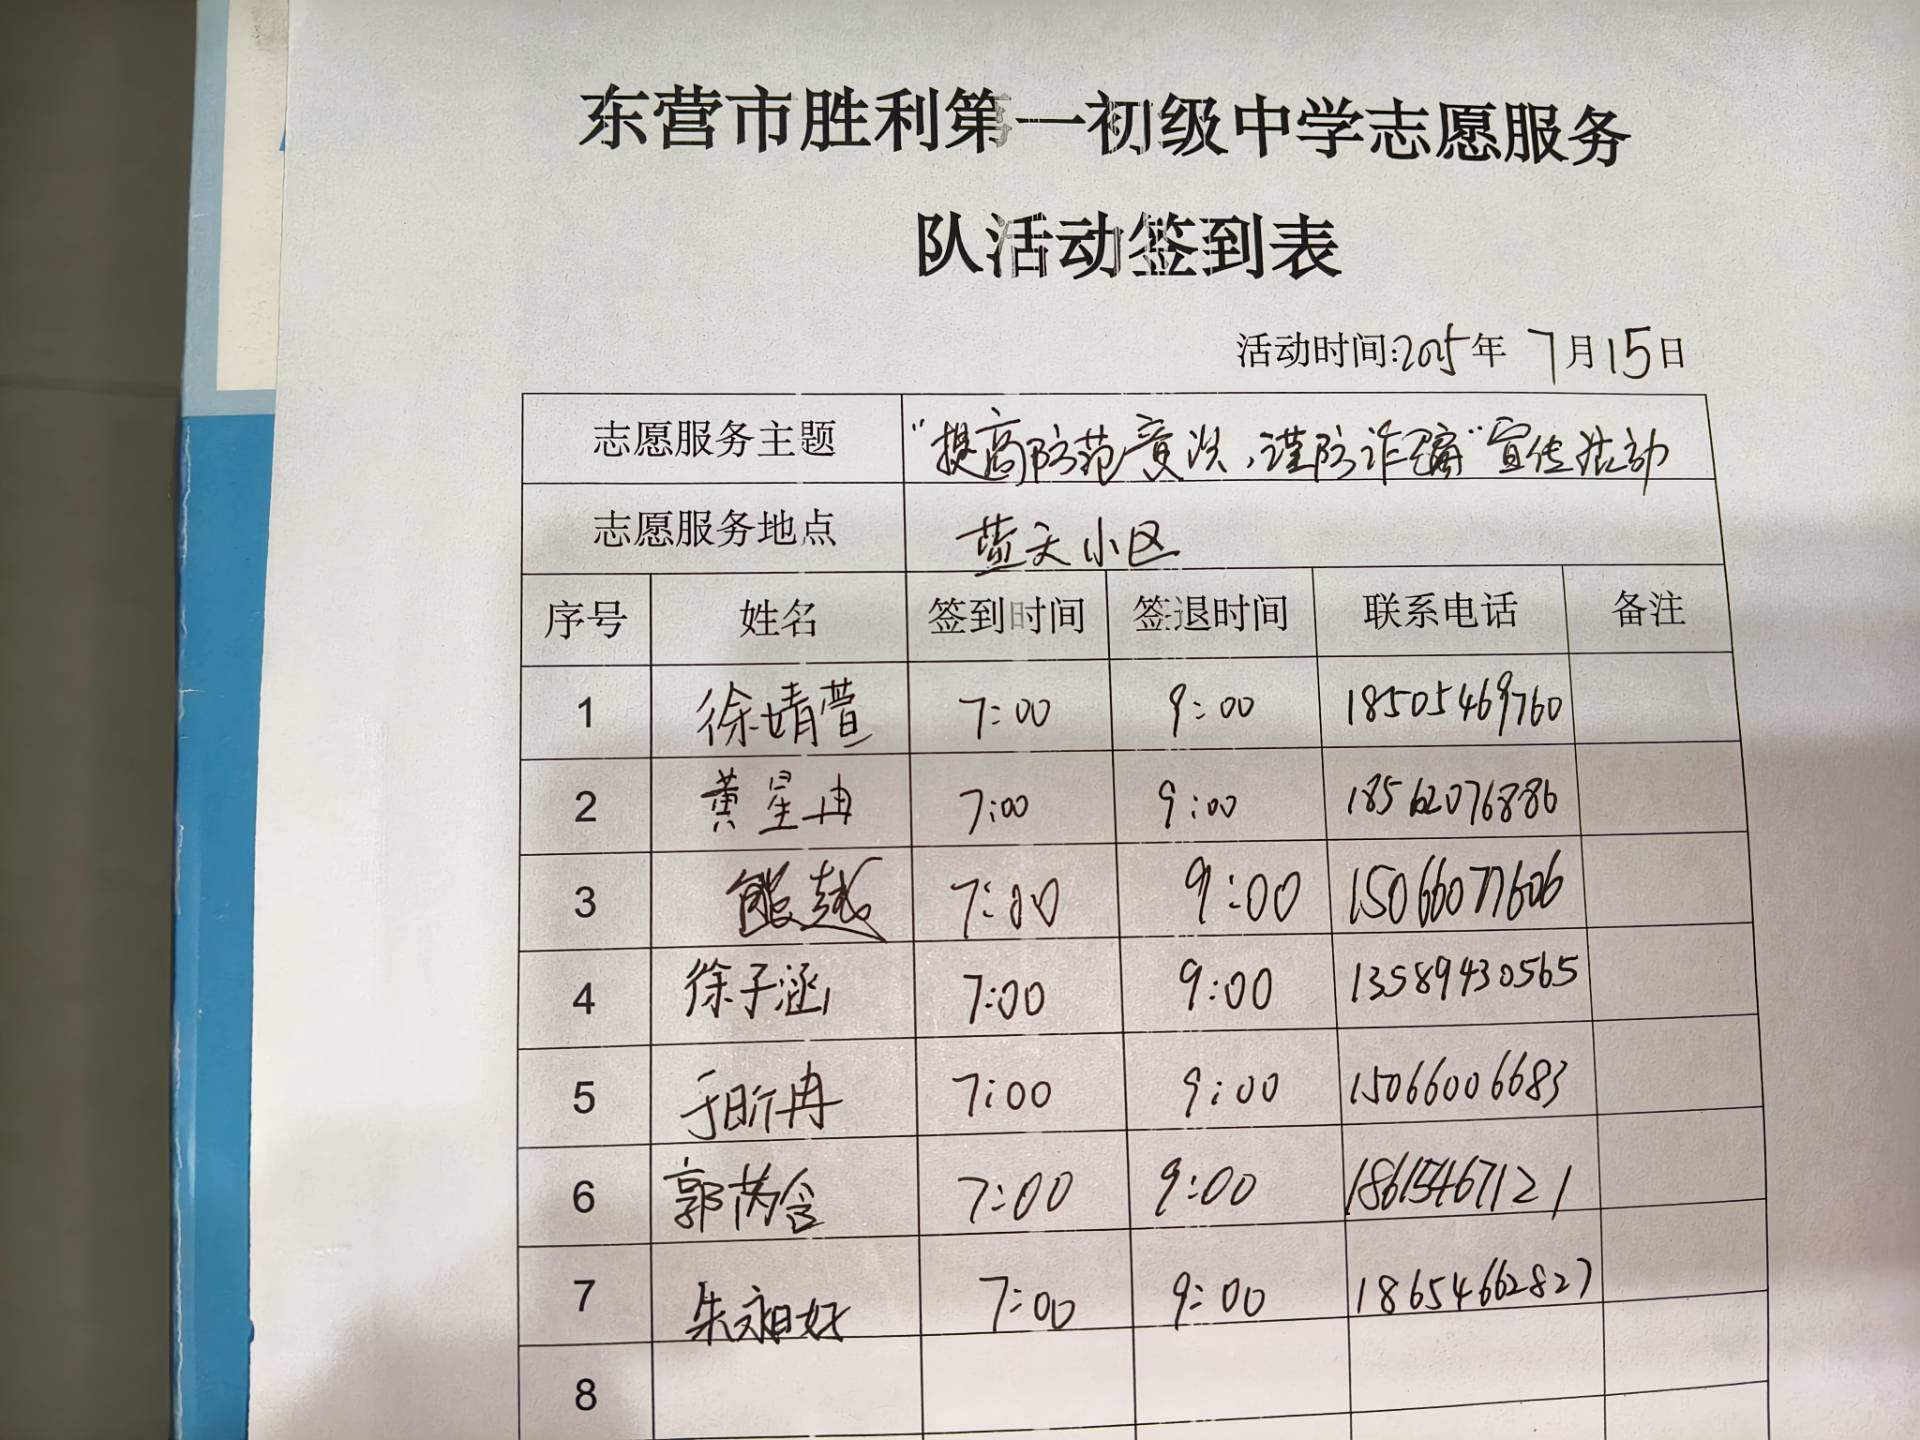 东营市胜利第一初级中学志愿服务
队活动签到表
活动时间:2025年 7月15日
志愿服务主题 “提高防范意识,谨防诈骗”宣传活动
志愿服务地点 蓝天小区
序号 姓名 签到时间 签退时间 联系电话 备注
1 徐婧萱 7:00 9:00 18505469760
2 黄星冉 7:00 9:00 18562076886
3 熊越 7:00 9:00 15066077606
4 徐子涵 7:00 9:00 13589430565
5 于昕冉 7:00 9:00 15066006683
6 郭芮含 7:00 9:00 18615467121
7 朱 7:00 9:00 18654662827
8